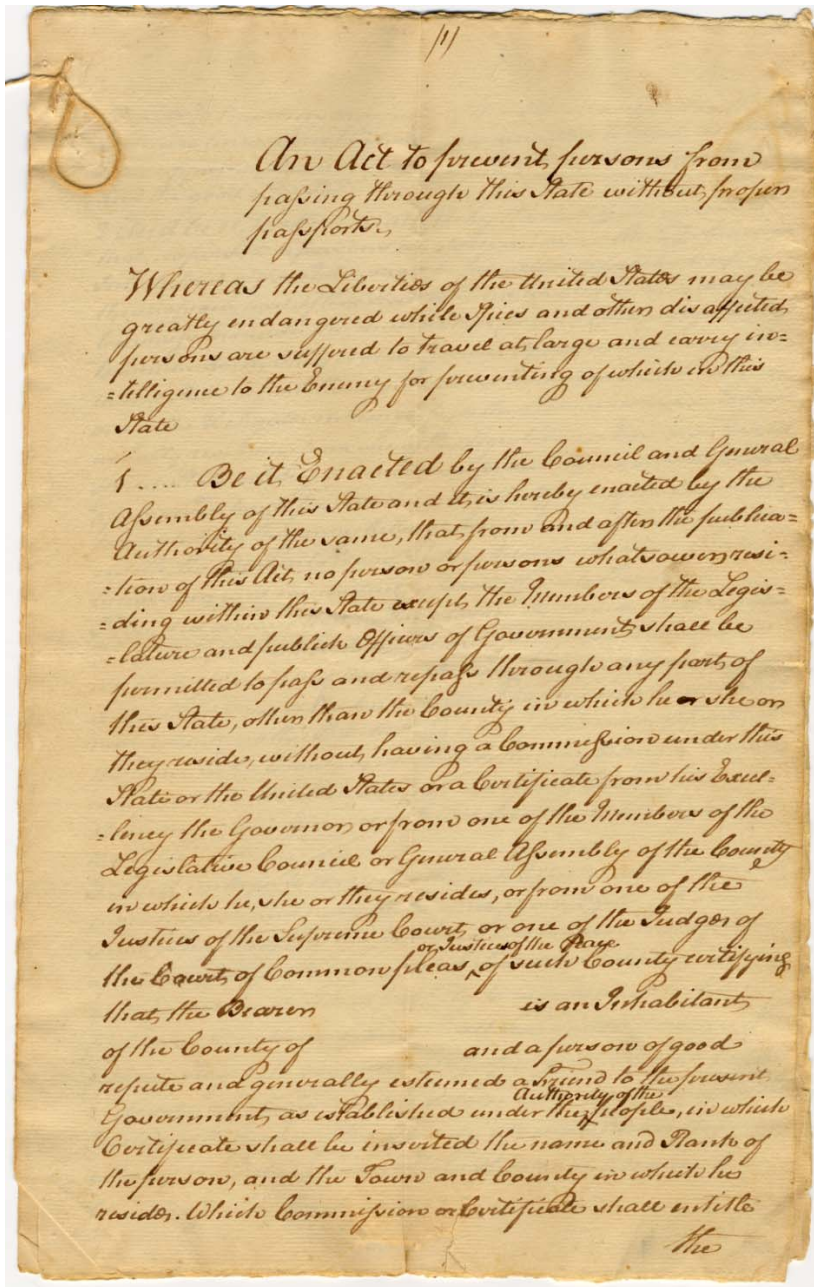 (1)
An Act to prevent persons from
paſsing through this State without proper
paſsports.
Whereas the Liberties of the United States may be
greatly endangered while Spies and other disaffected
persons are suffered to travel at large and carry in=
=telligence to the Enemy for preventing of which in this
State
1 .... Be it Enacted by the Council and General
Aſsembly of this State and it is hereby enacted by the
Authority of the same, that from and after the publica=
=tion of this Act no person or persons whatsoever resi=
=ding within this State except the Members of the Legis=
=lature and publick Officers of Government shall be
permitted to paſs and repaſs through any part of
this State, other than the County in which he or she or
they reside, without having a Commiſsion under this
State or the United States or a Certificate from his Excel=
=lency the Governor or from one of the Members of the
Legislative Council or General Aſsembly of the County
in which he, she or they resides, or from one of the
Justices of the Supreme Court or one of the Judges of
or Justices of the Peace
the Court of Common pleas ‸ of such County certifying
that the Bearer is an Inhabitant
of the County of and a person of good
repute and generally esteemed a Friend to the present
Authority of the
Government as established under the ‸ people, in which
Certificate shall be inserted the name and Rank of
the person, and the Town and County in which he
resides. Which Commiſsion or Certificate shall entitle
the